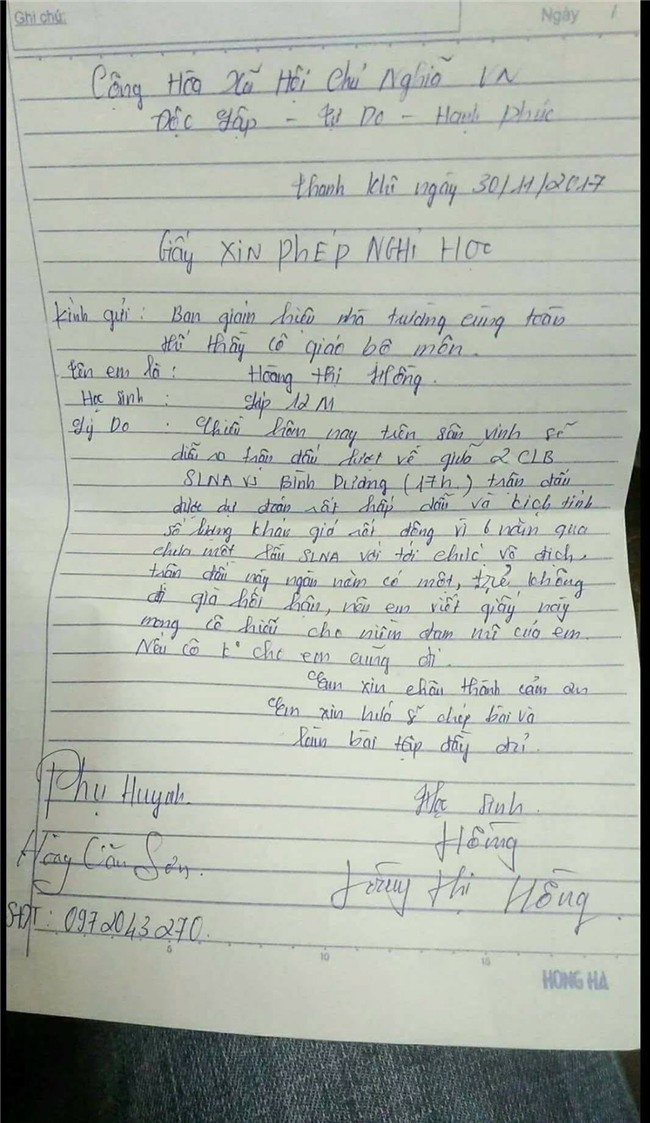 Ghi chú:
Ngày /
Cộng Hòa Xã Hội Chủ Nghĩa VN
Độc Lập - Tự Do - Hạnh phúc
thanh khê ngày 30/11/2017
Giấy XIN PHÉP NGHỈ HỌC
kính gửi : Ban giám hiệu nhà trường cùng toàn
thể thầy cô giáo bộ môn.
tên em là : Hoàng thị Hồng.
Học sinh : lớp 12M
Lý Do : Chiều hôm nay trên sân vinh sẽ
diễn ra trận đấu lượt về giữa 2 CLB
SLNA vs Bình Dương (17h.) trận đấu
được dự đoán rất hấp dẫn và kịch tính
số lượng khán giả rất đông vì 6 năm qua
chưa một lần SLNA với tới chức vô địch.
trận đấu này ngàn năm có một, trẻ không
đi già hối hận, nên em viết giấy này
mong cô hiểu cho niềm đam mê của em.
Nếu cô k° cho em cũng đi.
Em xin chân thành cảm ơn
Em xin hứa sẽ chép bài và
làm bài tập đầy đủ.
Phụ Huynh.
Học sinh.
Hồng
Hoàng Thị Hồng.
SĐT: 0972043270.
5 10 15
HONG HA